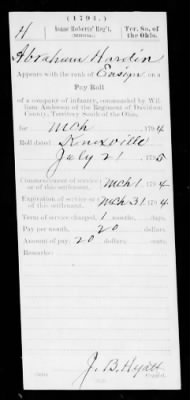 (1794.)
H Isaac Roberts' Reg't, Ter. So. of
(Militia). the Ohio.
Abraham Hardin
Appears with the rank of Ensign on a
Pay Roll
of a company of infantry, commanded by Wil-
liam Anderson of the Regiment of Davidson
County, Territory South of the Ohio,
for Mch , 1794
Roll dated Knoxville
July 21 , 1795
Commencement of service
or of this settlement. Mch 1 , 1794
Expiration of service or
of this settlement. Mch 31 , 1794
Term of service charged, 1 months, days.
Pay per month, 20 dollars, cents.
Amount of pay, 20 dollars,
Remarks:
J. B. Hyatt
Copyist.